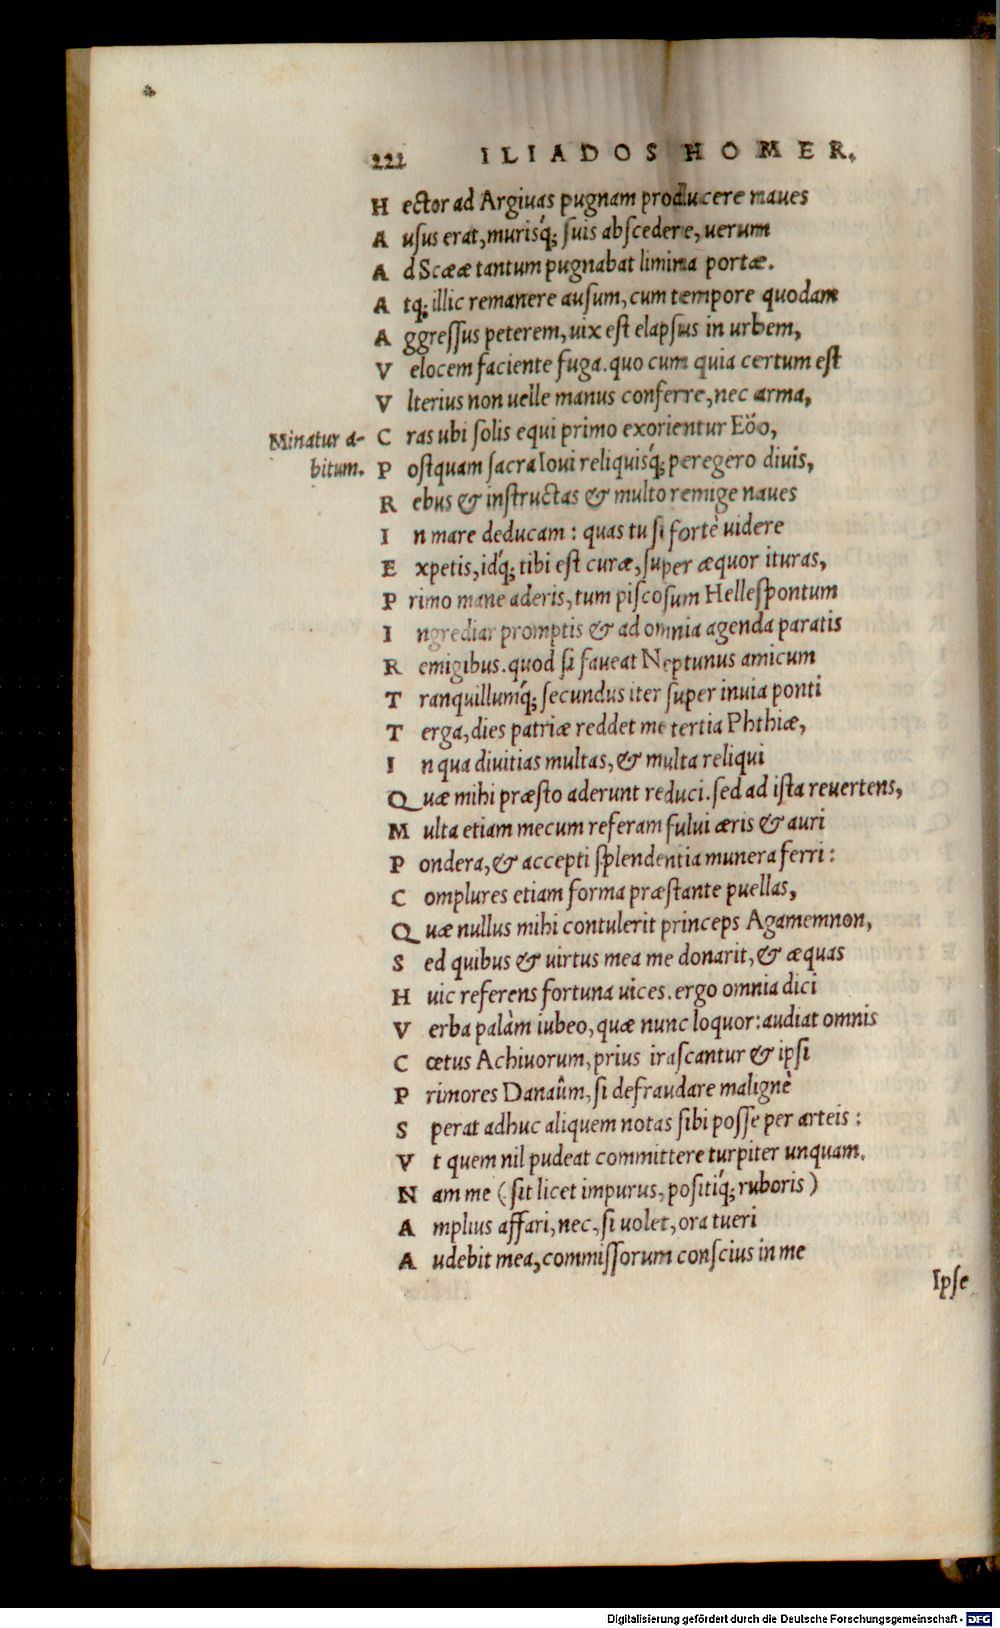 222 ILIADOS HOMER.
Hector ad Argiuas pugnam producere naues
Ausus erat, murisq́; suis abscedere, uerum
Ad Scææ tantum pugnabat limina portæ.
Atq; illic remanere ausum, cum tempore quodam
Aggressus peterem, uix est elapsus in urbem,
Velocem faciente fuga. quo cum quia certum est
Vlterius non uelle manus conferre, nec arma,
Minatur a- Cras ubi solis equi primo exorientur Eöo,
bitum. Postquam sacra Ioui reliquisq́; peregero diuis,
Rebus & instructas & multo remige naues
In mare deducam: quas tu si fortè uidere
Expetis, idq́; tibi est curæ, super æquor ituras,
Primo mane aderis, tum piscosum Hellespontum
Ingrediar promptis & ad omnia agenda paratis
Remigibus. quod si faueat Neptunus amicum
Tranquillumq́; secundus iter super inuia ponti
Terga, dies patriæ reddet me tertia Phthiæ,
In qua diuitias multas, & multa reliqui
Quæ mihi præsto aderunt reduci. sed ad ista reuertens,
Multa etiam mecum referam fului æris & auri
Pondera, & accepti splendentia munera ferri:
Complures etiam forma præstante puellas,
Quæ nullus mihi contulerit princeps Agamemnon,
Sed quibus & uirtus mea me donarit, & æquas
Huic referens fortuna uices. ergo omnia dici
Verba palàm iubeo, quæ nunc loquor: audiat omnis
Cœtus Achiuorum, prius irascantur & ipsi
Primores Danaûm, si defraudare malignè
Sperat adhuc aliquem notas sibi posse per arteis:
Vt quem nil pudeat committere turpiter unquam.
Nam me (sit licet impurus, positiq́; ruboris)
Amplius affari, nec, si uolet, ora tueri
Audebit mea, commissorum conscius in me
Ipse
Digitalisierung gefördert durch die Deutsche Forschungsgemeinschaft - DFG